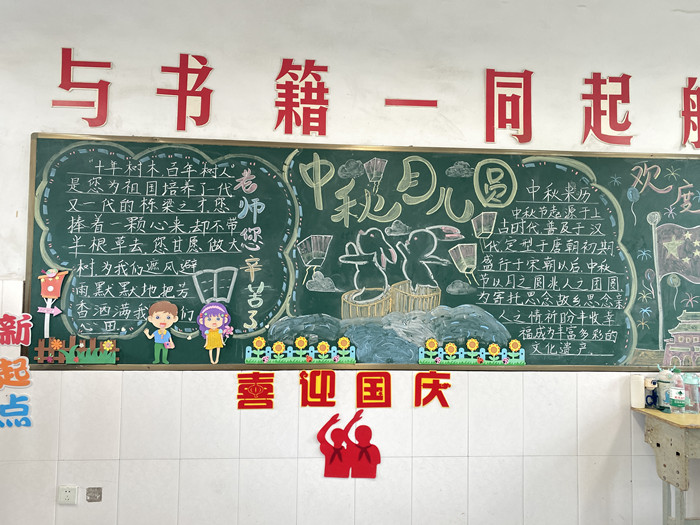 与书籍一同起航
"十年树木,百年树人"
是您为祖国培养了一代
又一代的栋梁之才,您
捧着一颗心来,却不带
半根草去,您甘愿做大
树为我们遮风避
雨,默默地把芳
香洒满我们
心田
老师您辛苦了
中秋月儿圆
中秋来历
中秋节起源于上
古时代,普及于汉
代,定型于唐朝初期,
盛行于宋朝以后,中秋
节以月之圆兆人之团圆
为寄托思念故乡,思念亲
人之情,祈盼丰收幸
福,成为丰富多彩的
文化遗产.
欢度
新起点
喜迎国庆